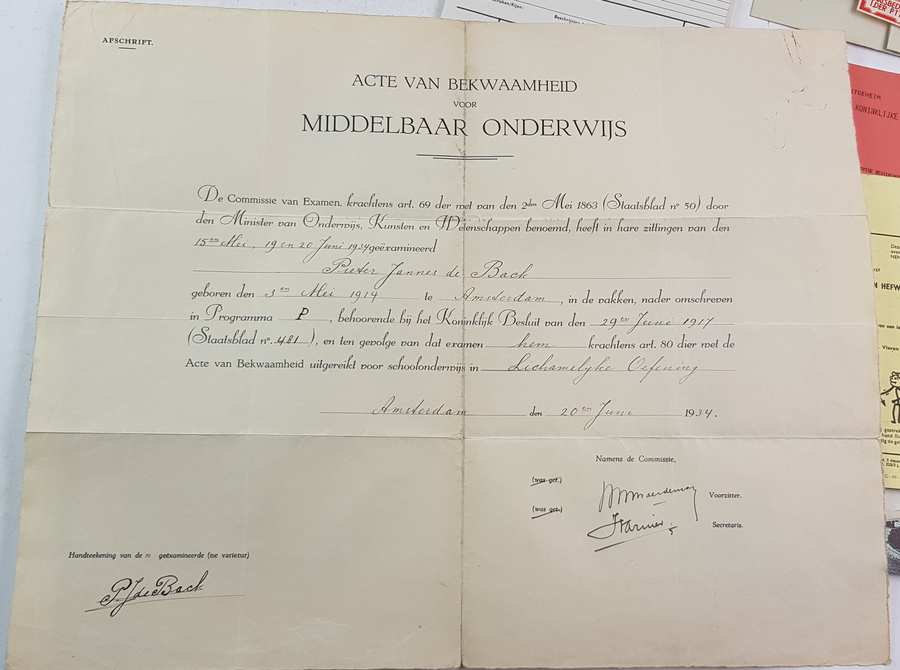 AFSCHRIFT.
ACTE VAN BEKWAAMHEID
VOOR
MIDDELBAAR ONDERWIJS
De Commissie van Examen, krachtens art. 69 der wet van den 2den Mei 1863 (Staatsblad no 50) door
den Minister van Onderwijs, Kunsten en Wetenschappen benoemd, heeft in hare zittingen van den
15en Mei, 19 en 20 Juni 1934 geëxamineerd
Pieter Jannes de Bach
geboren den 3en Mei 1914 te Amsterdam, in de vakken, nader omschreven
in Programma P, behoorende bij het Koninklijk Besluit van den 29en Juni 1917
(Staatsblad no. 481), en ten gevolge van dat examen hem krachtens art. 80 dier wet de
Acte van Bekwaamheid uitgereikt voor schoolonderwijs in Lichamelijke Oefening
Amsterdam den 20en Juni 1934.
Namens de Commissie,
(was get.) Voorzitter.
(was get.) Secretaris.
Handteekening van de geëxamineerde (ne varietur)
PJ de Bach
KONINKLIJKE